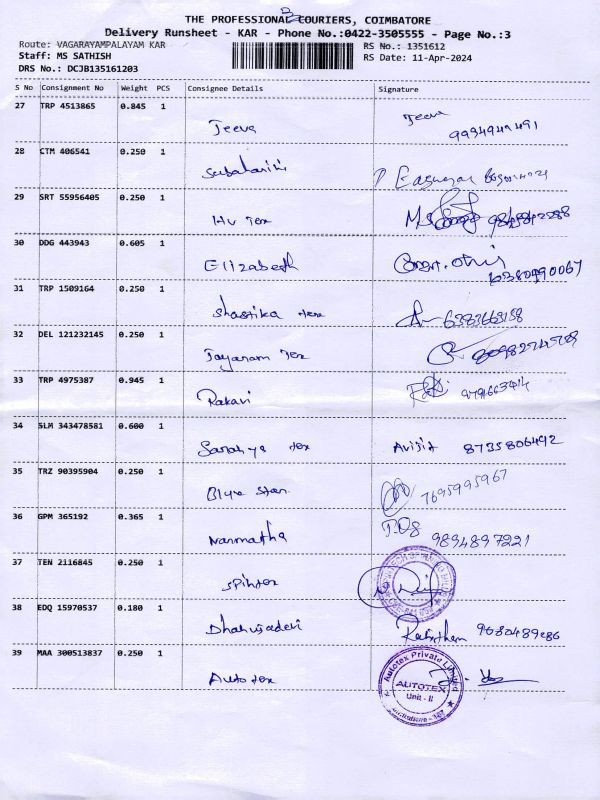 THE PROFESSIONAL COURIERS, COIMBATORE
Delivery Runsheet - KAR - Phone No.:0422-3505555 - Page No.:3
Route: VAGARAYAMPALAYAM KAR
RS No.: 1351612
Staff: MS SATHISH
RS Date: 11-Apr-2024
DRS No.: DCJB135161203
S No Consignment No Weight PCS Consignee Details Signature
27 TRP 4513865 0.845 1
Jeeva Jeeva
9934949491
28 CTM 406541 0.250 1
Subaharini
29 SRT 55956405 0.250 1
Hv Tex
30 DDG 443943 0.605 1
Elizabeth
6380990067
31 TRP 1509164 0.250 1
Shastika Tex 6383663158
32 DEL 121232145 0.250 1
Jayaram Tex
33 TRP 4975387 0.945 1
34 SLM 343478581 0.600 1
Saranya Tex Avijit 8735806492
35 TRZ 90395904 0.250 1
Blue Star 7695995967
36 GPM 365192 0.365 1
Nanmatha 9894897221
37 TEN 2116845 0.250 1
Spintex
38 EDQ 15970537 0.180 1
Dhanusadevi 9080489286
39 MAA 300513837 0.250 1
Autotex
Autotex Private Limited
AUTOTEX
Unit - II